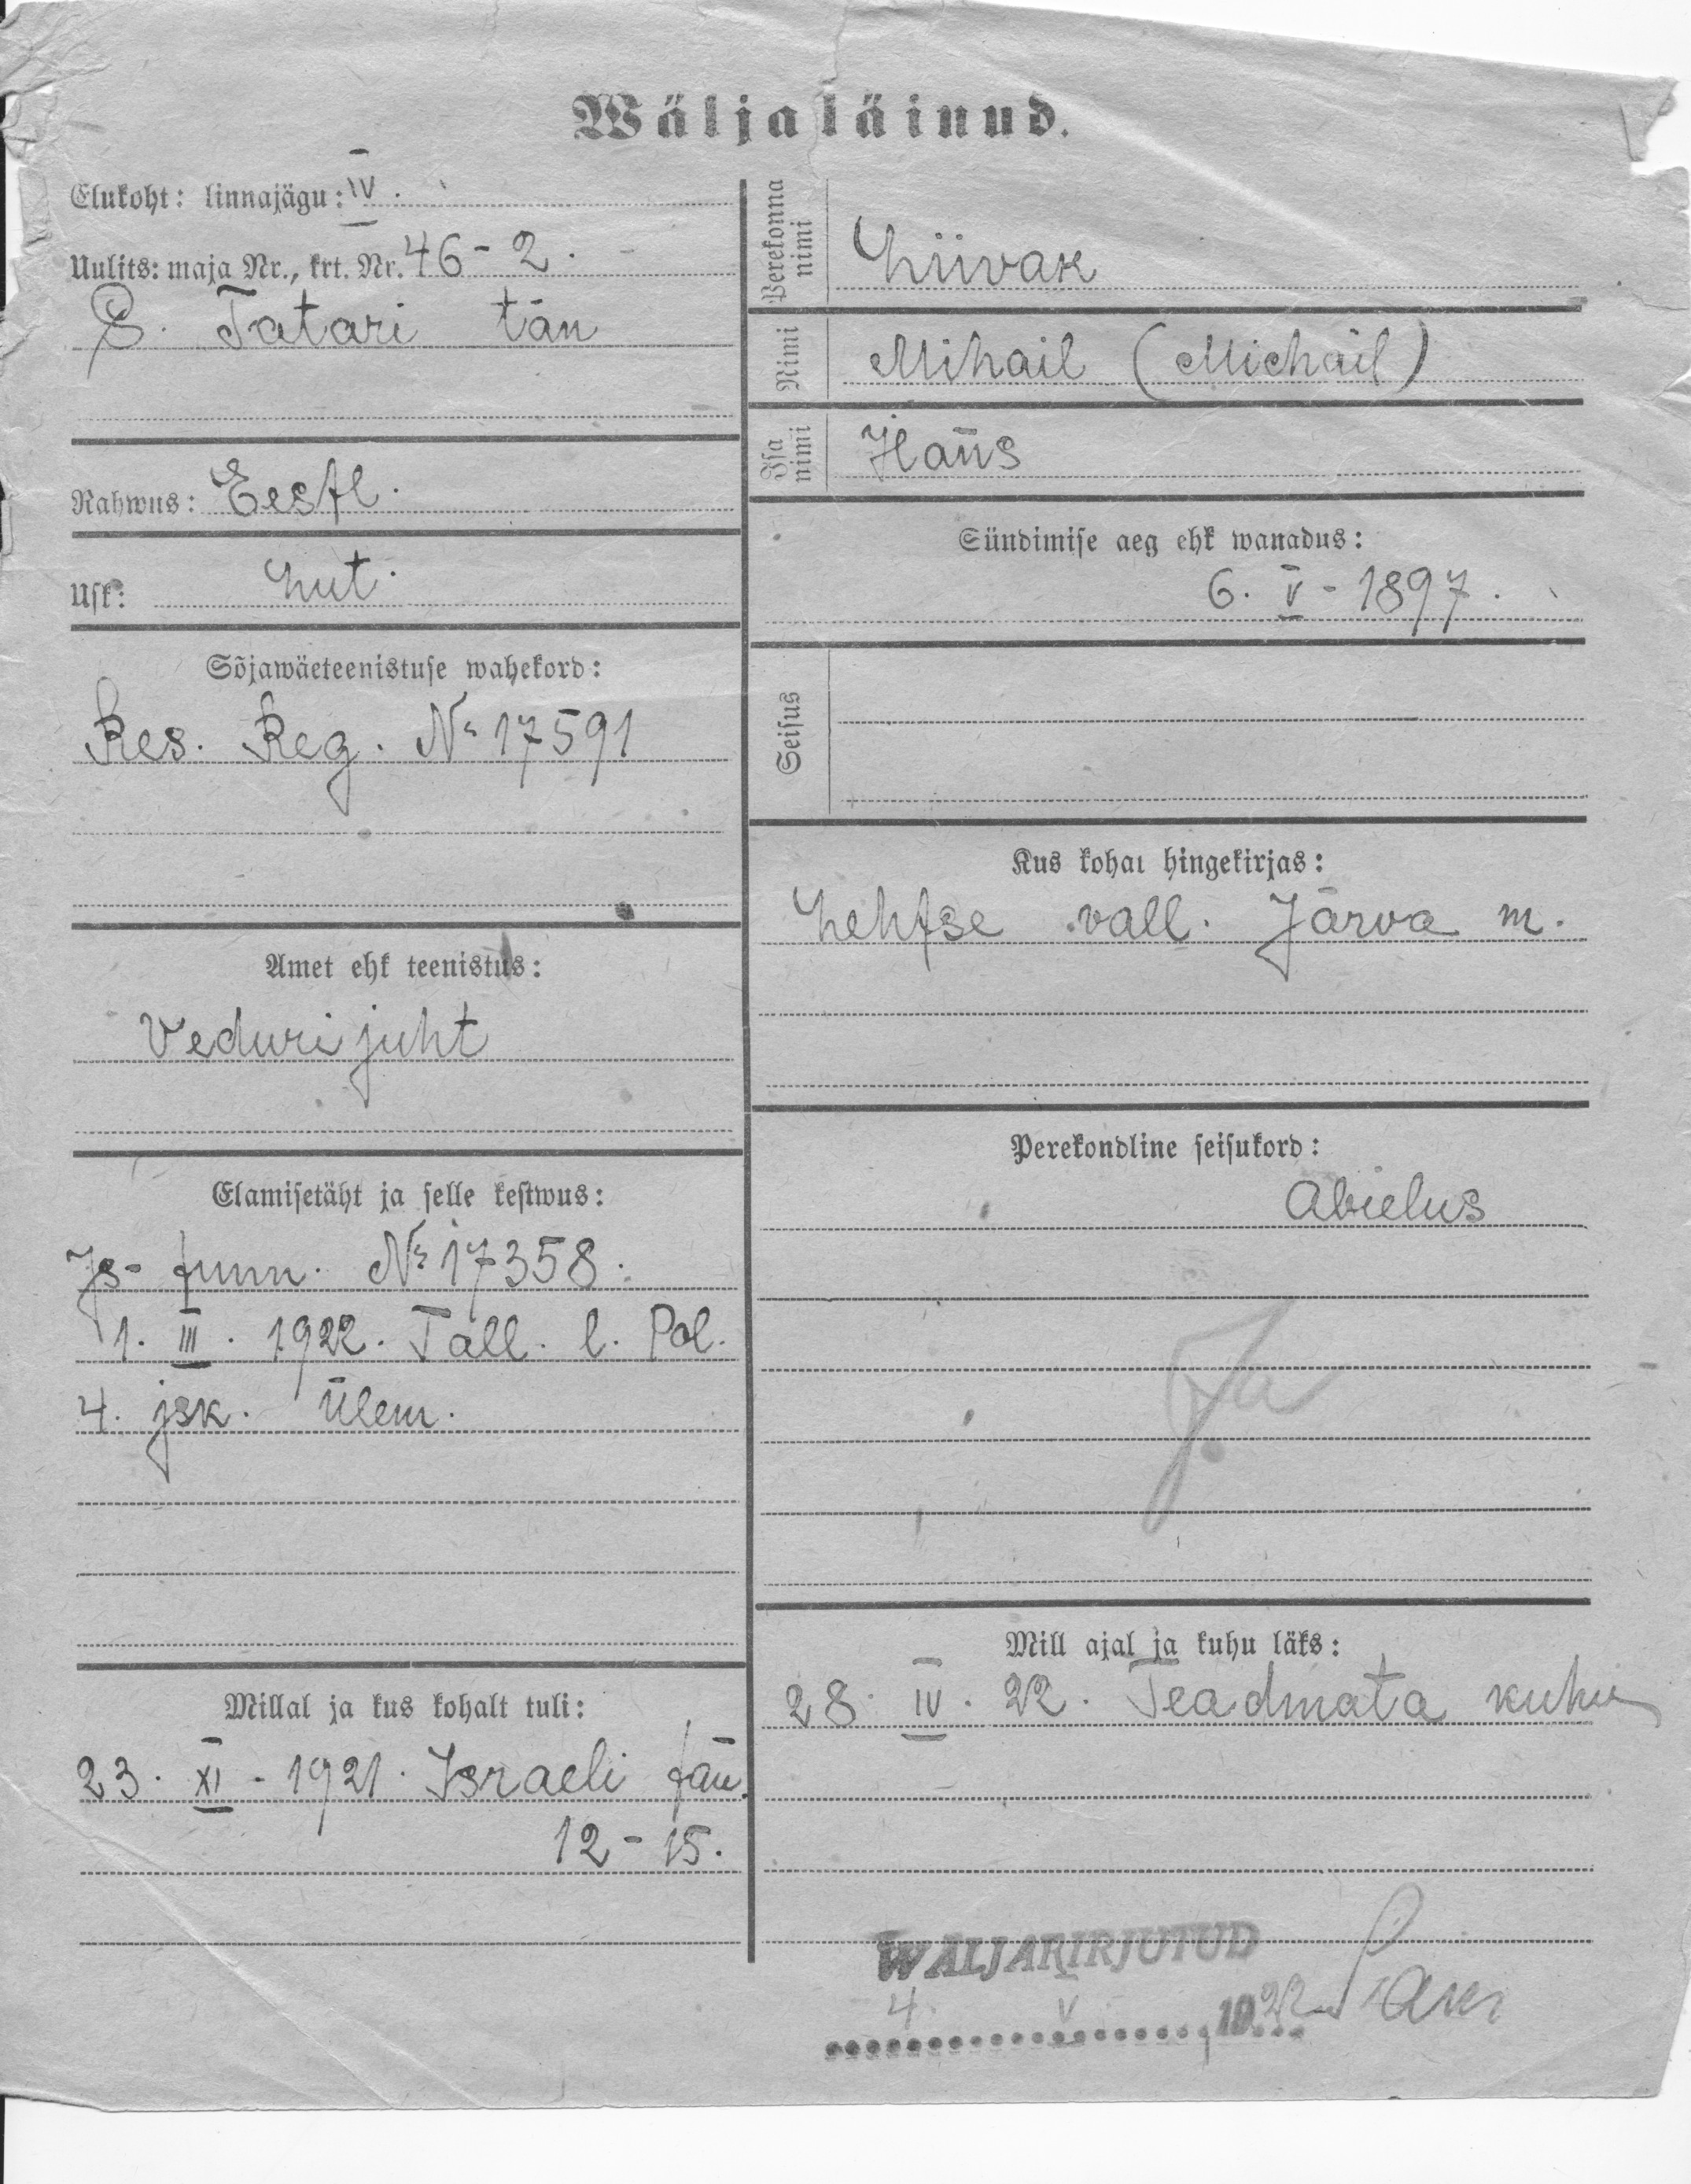 Wäljaläinud.
Elukoht: linnajagu: IV.
Uulits: maja Nr., krt. Nr. 46-2.
S. Tatari tän
Rahwus: Eestl.
Usk: Lut.
Sõjawäeteenistuse wahekord:
Res. Reg. № 17591
Amet ehk teenistus:
Veduri juht
Elamisetäht ja selle kestwus:
Is- tunn. № 17358.
1. III. 1922. Tall. l. Pol.
4. jsk. Ülem.
Millal ja kus kohalt tuli:
23. XI - 1921. Israeli tän.
12-15.
Perekonna nimi Liivak
Nimi Mihail (Michail)
Isa nimi Hans
Sündimise aeg ehk wanadus:
6. V - 1897.
Seisus
Kus kohal hingekirjas:
Lehtse vall. Järva m.
Perekondline seisukord:
Abielus
Ja
Mill ajal ja kuhu läks:
28. IV. 22. Teadmata kuhu
WÄLJAKIRJUTUD
4. V 1922